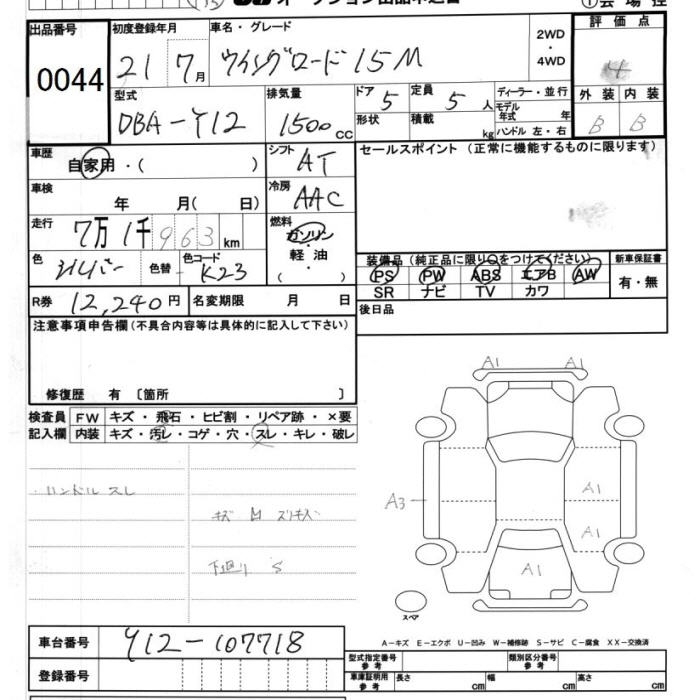 出品番号
0044
初度登録年月
21 7月
車名・グレード
ウイングロード 15M
2WD
・
4WD
評価点
4
型式
DBA-Y12
排気量
1500cc
ドア 5
形状
定員 5人
積載 kg
ディーラー・並行
モデル年式 年
ハンドル 左・右
外装 内装
B B
車歴
自家用・( )
シフト
AT
セールスポイント (正常に機能するものに限ります)
車検
年 月( 日)
冷房
AAC
走行
7万1千963km
燃料
ガソリン
軽油
( ・ )
色
シルバー
色替
色コード
K23
装備品 (純正品に限り○をつけてください)
新車保証書
PS PW ABS エアB AW
SR ナビ TV カワ
有・無
R券 12,240円
名変期限 月 日
後日品
注意事項申告欄(不具合内容等は具体的に記入して下さい)
修復歴 有 〔箇所 〕
検査員記入欄
FW キズ・飛石・ヒビ割・リペア跡・×要
内装 キズ・汚レ・コゲ・穴・スレ・キレ・破レ
ハンドル スレ
キズ 凹
下回り S
A1 A1
A1
A3
A1
A1
スペア
A-キズ E-エクボ U-凹み W-補修跡 S-サビ C-腐食 XX-交換済
車台番号 Y12-107718
型式指定番号
参考
類別区分番号
参考
登録番号
車庫証明用
参考
長さ cm
幅 cm
高さ cm